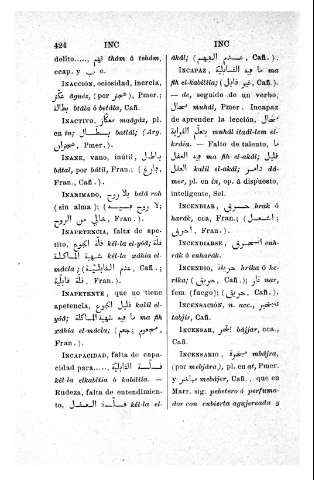 424 INC
delito....., تهم thám ó tehám,
ceap. y ب c.
INACCIÓN, ociosidad, inercia,
عكز âguéz, (por عجز), Pmer.;
بطالة btála ó betála, Cañ.
INACTIVO, معكاز madgáz, pl.
en in; بطال battâl; (Arg.
عجزان, Pmer.).
INANE, vano, inútil, باطل
bátal, por bátil, Fran.; (فارغ,
Fran., Cañ.).
INANIMADO, بلا روح belá roh
(sin alma); (لا روح فيه;
خالي من الروح, Fran.).
INAPETENCIA, falta de ape-
tito, قلة الجوع kél-la el-yóâ; قلة
شهية الماكلة kél-la záhia el-
mácla; (عدم القابلية, Cañ.;
قلة قابلية, Fran.).
INAPETENTE, que no tiene
apetencia, قليل الجوع kalil el-
yóâ; ما فيه شهية الماكلة ma fih
záhia el-mácla; (جعم; مجعوم,
Fran.).
INCAPACIDAD, falta de capa-
cidad para....., قلة القابلية
kél-la elkabilia ó kabilía. —
Rudeza, falta de entendimien-
to, قلة العقل kél-la el-
INC
âkál; (عدم الفهم, Cañ.).
INCAPAZ, ما فيه القابلية ma
fih el-kabilia; (غير قابل, Cañ.).
— de, seguido de un verbo,
محال muhál, Pmer. Incapaz
de aprender la lección, محال
يتعلم القراية muhál itaâl-lem el-
kráia. — Falto de talento, ما
فيه العقل ma fih el-akál; قليل
العقل kalil el-akál; دامر dá-
mer, pl. en in, op. á dispuesto,
inteligente, Sol.
INCENDIAR, حرق hrak ó
harák, cca, Fran.; (اشعل;
احرق, Fran.).
INCENDIARSE, انحرق enh-
rák ó enharák.
INCENDIO, حريقة hrika ó he-
rika; (حريق, Cañ.), نار nar,
fem. (fuego); (حريق, Cañ.).
INCENSACIÓN, n. acc., تبخير
tabjír, Cañ.
INCENSAR, بخر bájjar, cca.,
Cañ.
INCENSARIO, مبخرة mbájra,
(por mebjára), pl. en at, Pmer.
y مباخر mebájer, Cañ., que en
Marr. sig. pebetero ó perfuma-
dor con cubierta agujereada y